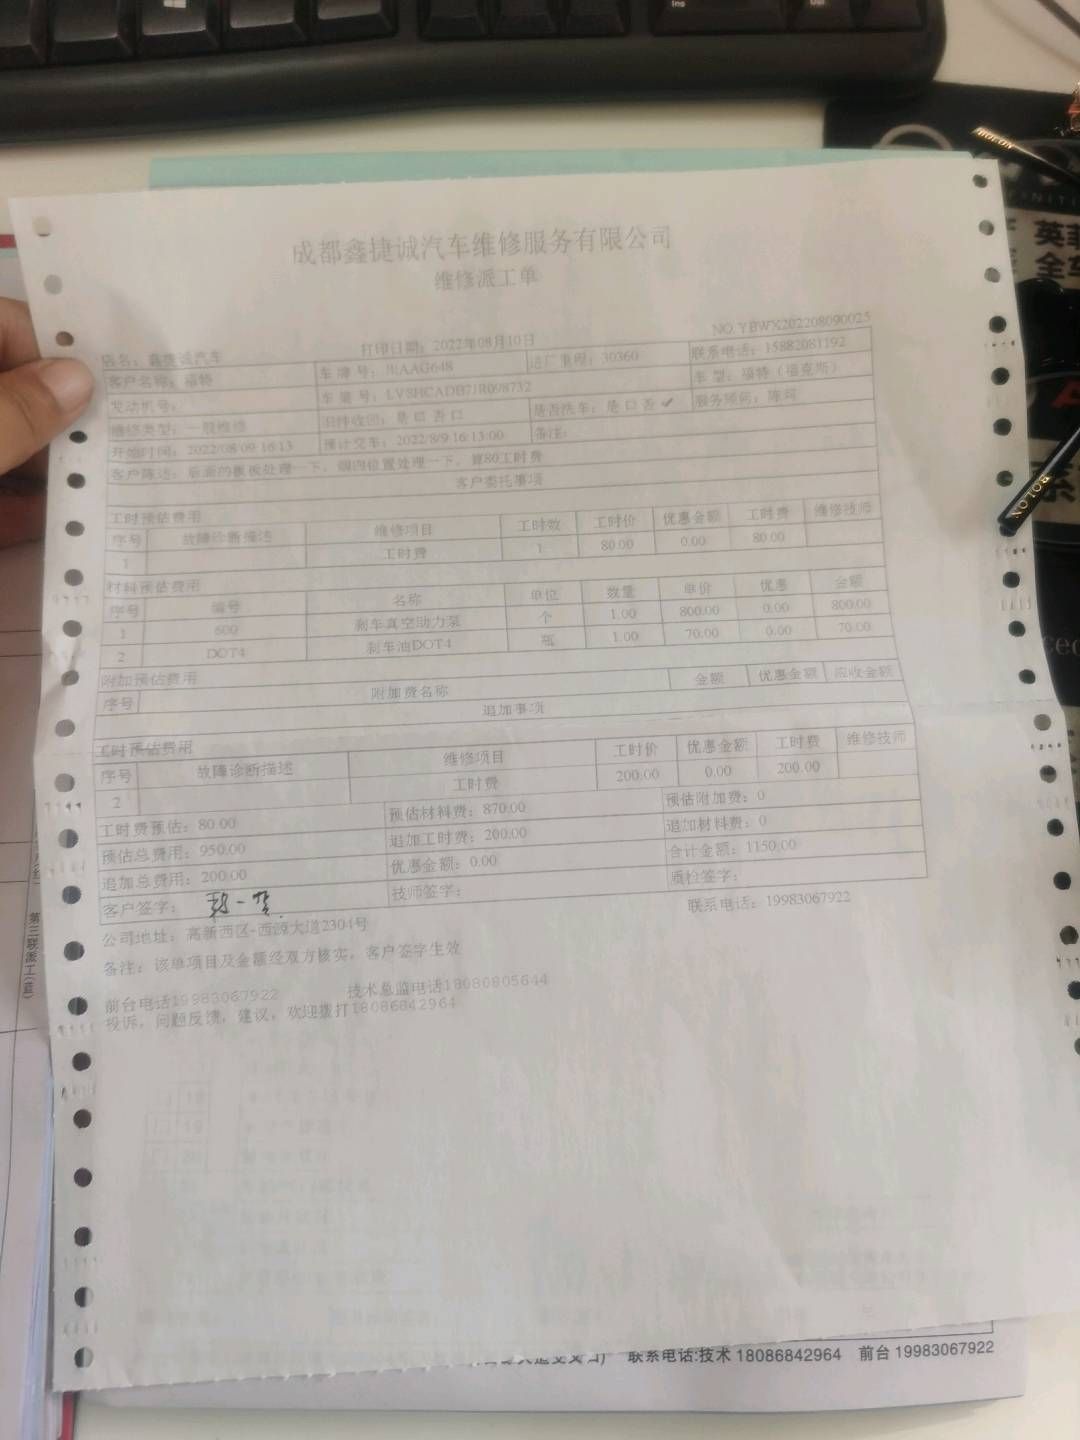 成都鑫捷诚汽车维修服务有限公司
维修派工单
NO.YBWX202208090025
店名：鑫捷诚汽车 打印日期：2022年08月10日
客户名称：福特 车牌号：JRAAG648 进厂里程：30360 联系电话：15882081192
发动机号： 车架号：LVSHCADB7JR098732 车型：福特（福克斯）
维修类型：一般维修 旧件收回：是口否口 是否洗车：是口否✓ 服务顾问：陈珂
开始时间：2022/08/09 16:13 预计交车：2022/8/9 16:13:00 备注：
客户陈述：后面的 处理一下， 位置处理一下，算80工时费
客户委托事项
工时预估费用
序号 故障诊断描述 维修项目 工时数 工时价 优惠金额 工时费 维修技师
1 工时费 1 80.00 0.00 80.00
材料预估费用
序号 编号 名称 单位 数量 单价 优惠 金额
1 600 刹车真空助力泵 个 1.00 800.00 0.00 800.00
2 DOT4 刹车油DOT4 瓶 1.00 70.00 0.00 70.00
附加预估费用
序号 附加费名称 金额 优惠金额 应收金额
追加事项
工时预估费用
序号 故障诊断描述 维修项目 工时价 优惠金额 工时费 维修技师
2 工时费 200.00 0.00 200.00
工时费预估：80.00 预估材料费：870.00 预估附加费：0
预估总费用：950.00 追加工时费：200.00 追加材料费：0
追加总费用：200.00 优惠金额：0.00 合计金额：1150.00
客户签字： 技师签字： 质检签字：
公司地址：高新西区-西源大道2304号 联系电话：19983067922
备注：该单项目及金额经双方核实，客户签字生效
前台电话19983067922 技术总监电话18080805644
投诉，问题反馈，建议，欢迎拨打18086842964
联系电话:技术 18086842964 前台 19983067922
第三联派工(蓝)
BOLON
BOLON
Ins
Del